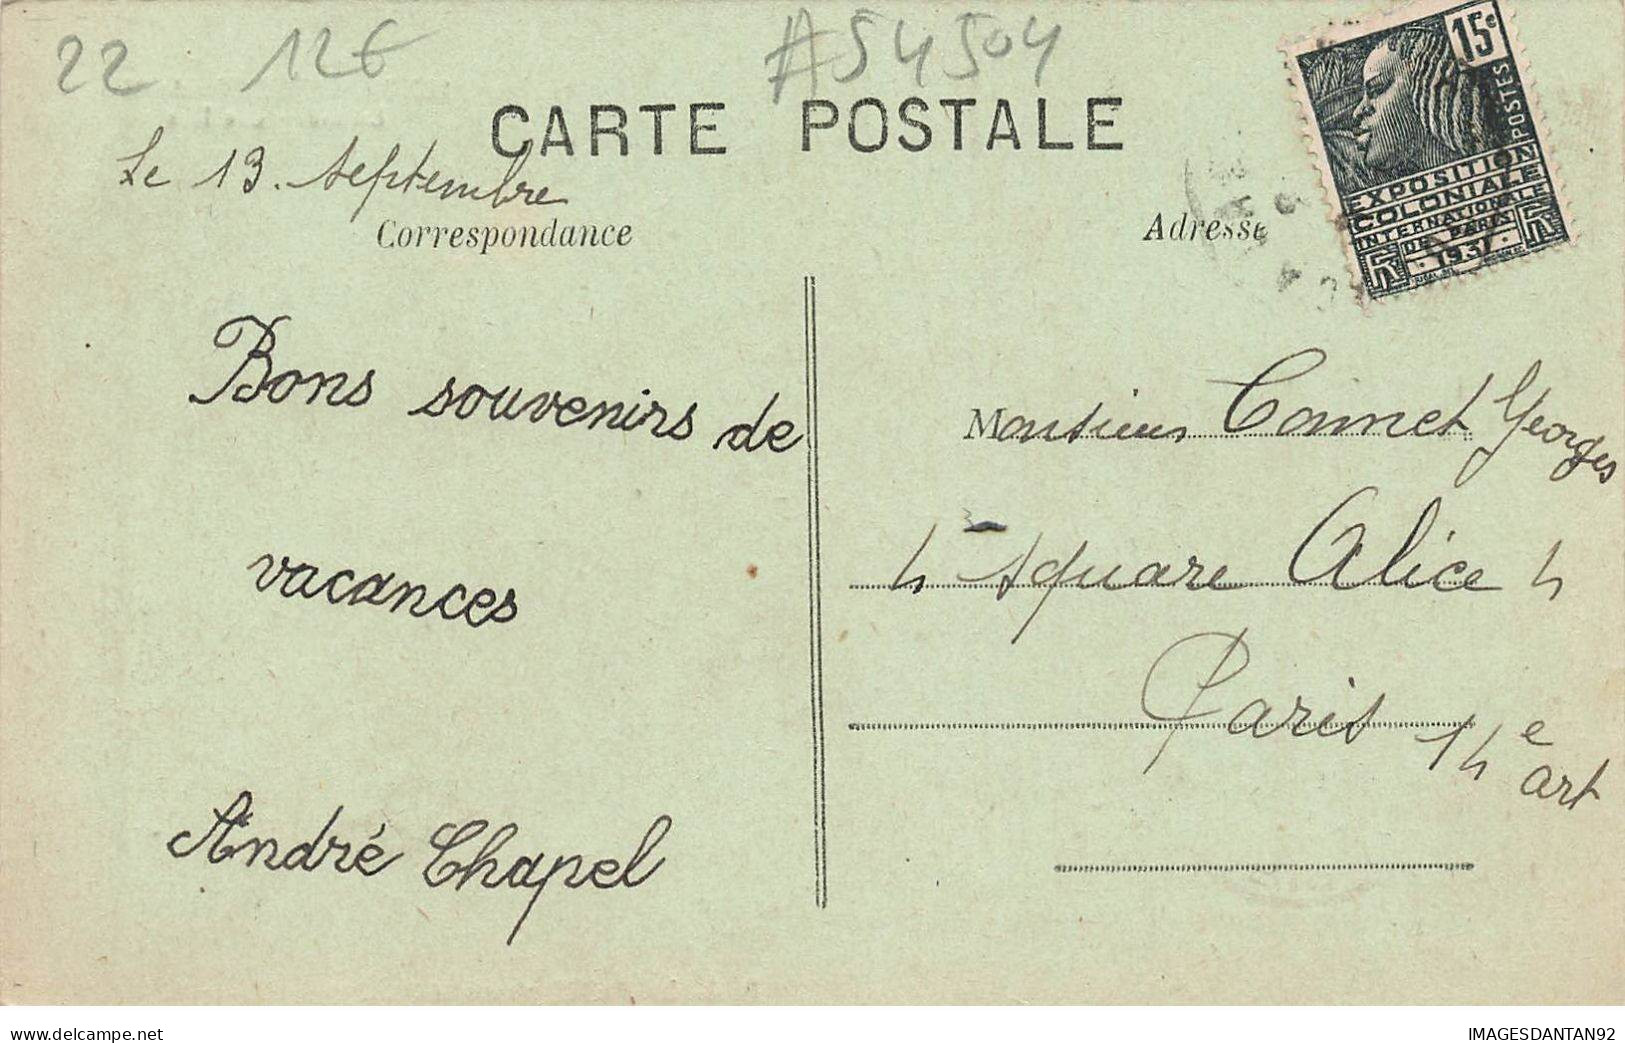 22 12€ A54504
CARTE POSTALE
Le 13. septembre
Correspondance
Adresse
15c
POSTES
EXPOSITION
COLONIALE
INTERNATIONALE
DE PARIS
1931
RF RF
Bons souvenirs de
vacances
André Chapel
Monsieur Georges
4 square Alice 4
Paris 14e
art
www.delcampe.net
IMAGESDANTAN92